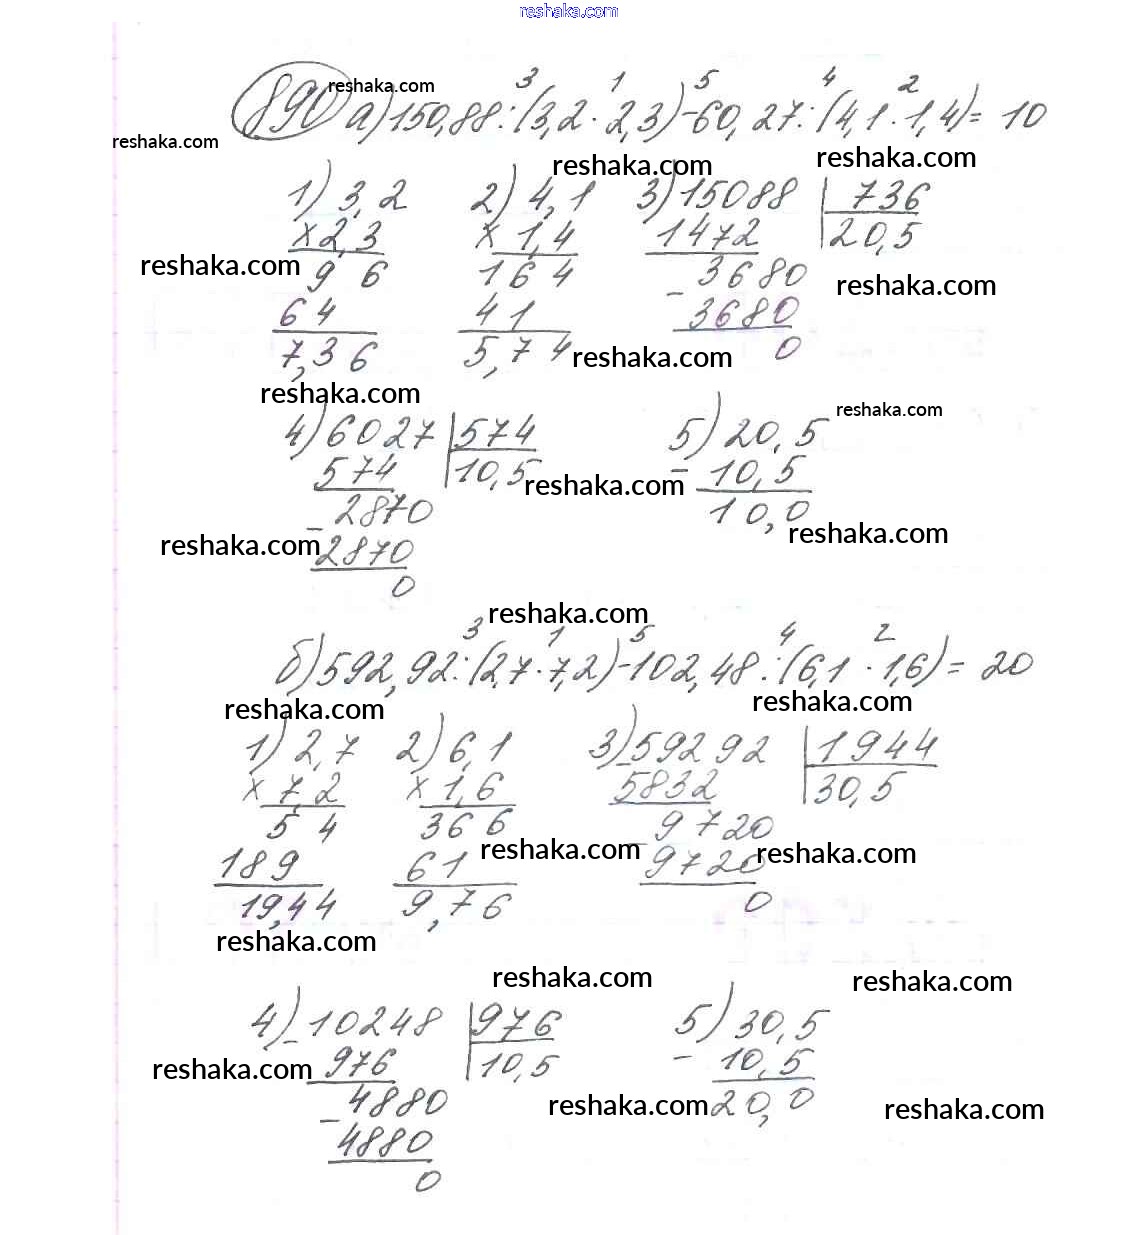 reshaka.com
890 а) 150,88:(3,2·2,3)-60,27:(4,1·1,4)= 10
3 1 5 4 2
reshaka.com
reshaka.com
reshaka.com reshaka.com
1) 3,2 2) 4,1 3) 15088 | 736
×2,3 × 1,4 1472 20,5
reshaka.com 9 6 164 - 3680 reshaka.com
64 41 3680
7,36 5,74 reshaka.com 0
reshaka.com
reshaka.com
4) 6027 | 574 5) 20,5
574 10,5 reshaka.com - 10,5
- 2870 10,0 reshaka.com
reshaka.com 2870
0
reshaka.com
3 1 5 4 2
б) 592,92:(2,7·7,2)-102,48:(6,1·1,6)= 20
reshaka.com reshaka.com
1) 2,7 2) 6,1 3) 59292 | 1944
× 7,2 × 1,6 5832 30,5
5 4 366 reshaka.com - 9720 reshaka.com
189 61 9720
19,44 9,76 0
reshaka.com
reshaka.com reshaka.com
4) - 10248 | 976 5) 30,5
reshaka.com 976 10,5 - 10,5
- 4880 reshaka.com 20,0 reshaka.com
4880
0